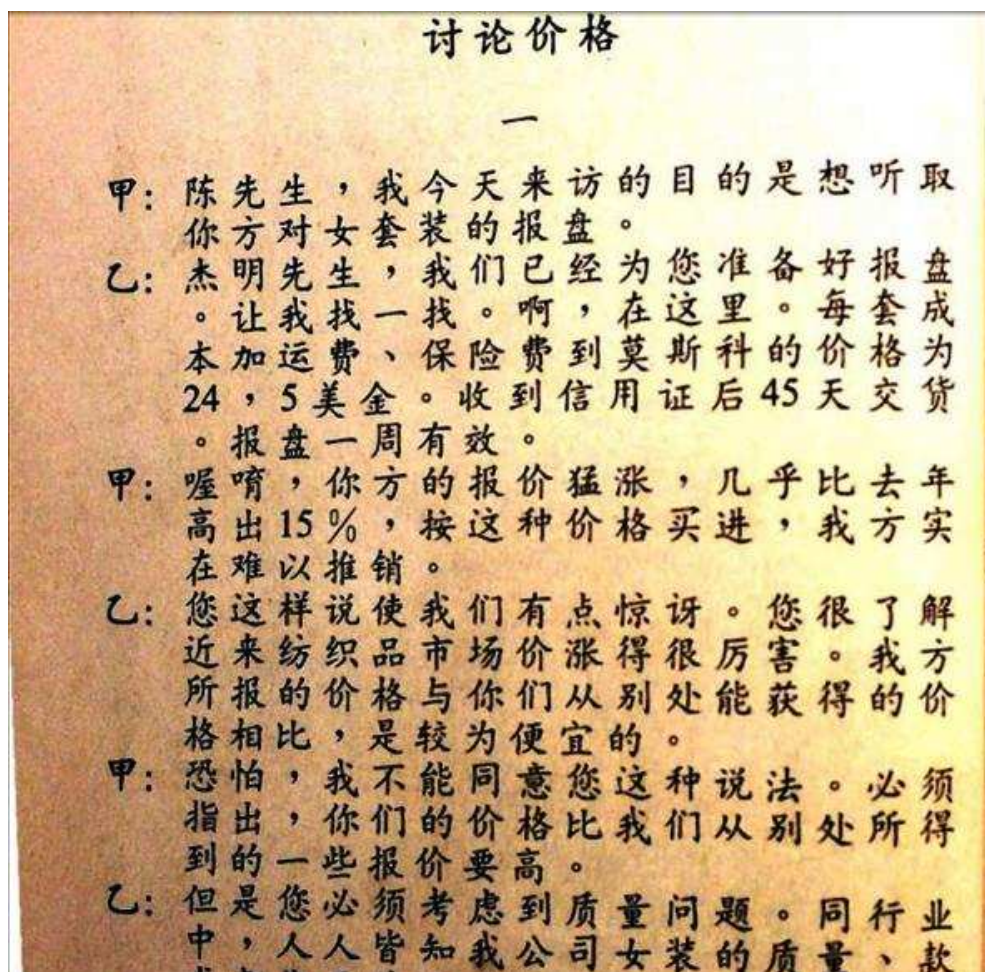 讨论价格
一
甲：陈先生，我今天来访的目的是想听取
你方对女套装的报盘。
乙：杰明先生，我们已经为您准备好报盘
。让我找一找。啊，在这里。每套成
本加运费、保险费到莫斯科的价格为
24，5美金。收到信用证后45天交货
。报盘一周有效。
甲：喔唷，你方的报价猛涨，几乎比去年
高出15%，按这种价格买进，我方实
在难以推销。
乙：您这样说使我们有点惊讶。您很了解
近来纺织品市场价涨得很厉害。我方
所报的价格与你们从别处能获得的价
格相比，是较为便宜的。
甲：恐怕，我不能同意您这种说法。必须
指出，你们的价格比我们从别处所得
到的一些报价要高。
乙：但是您必须考虑到质量问题。同行业
中，人人皆知我公司女装的质量、款